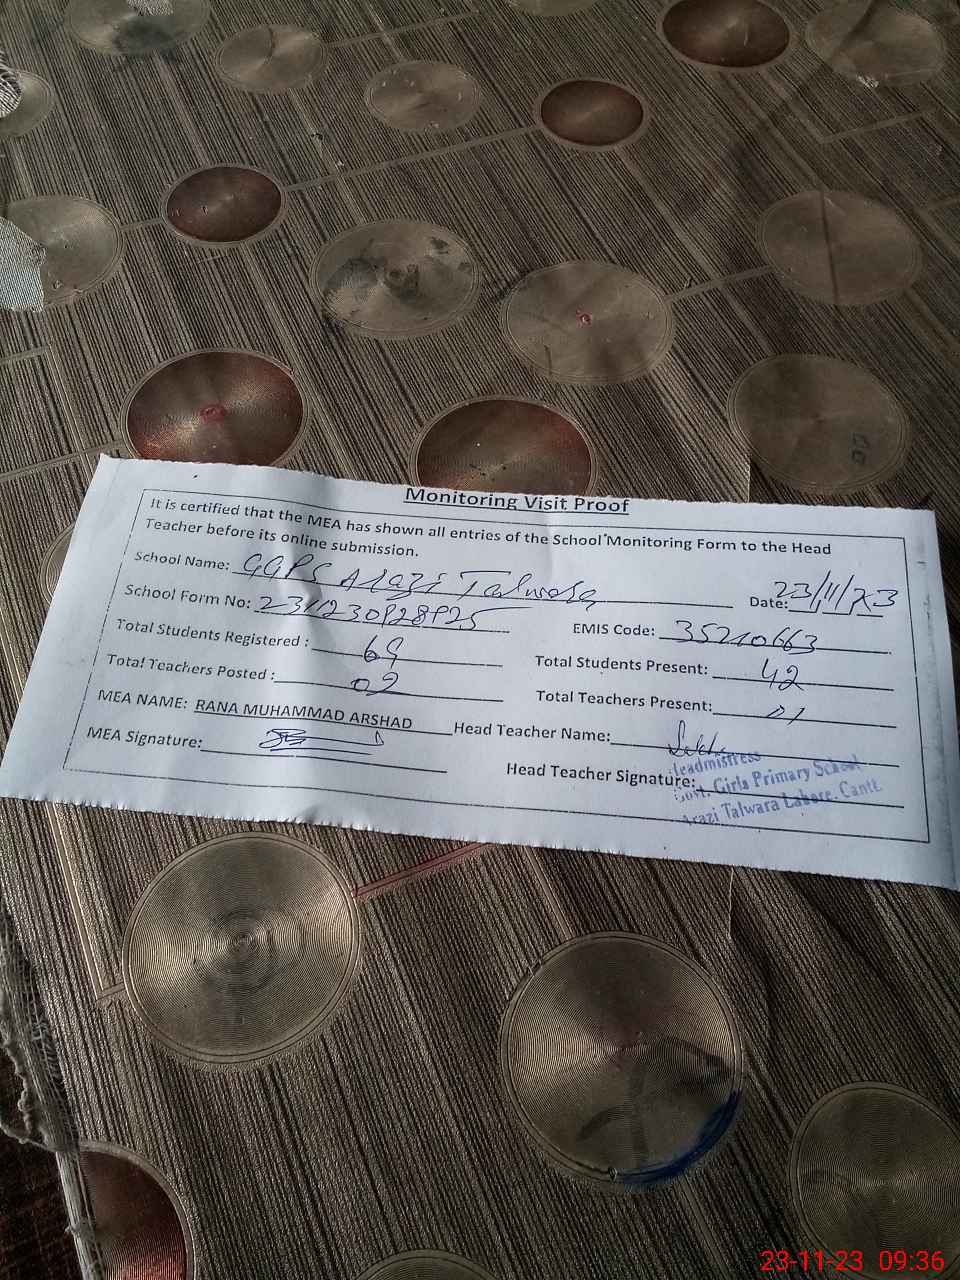 Monitoring Visit Proof
It is certified that the MEA has shown all entries of the School Monitoring Form to the Head
Teacher before its online submission.
School Name: GGPS Arazi Talwara Date: 23/11/23
School Form No: 2311230928925 EMIS Code: 35210663
Total Students Registered : 69 Total Students Present: 42
Total Teachers Posted : 02 Total Teachers Present: 01
MEA NAME: RANA MUHAMMAD ARSHAD Head Teacher Name:
MEA Signature: Head Teacher Signature:
Headmistress
Govt. Girls Primary School
Arazi Talwara Lahore. Cantt
23-11-23 09:36